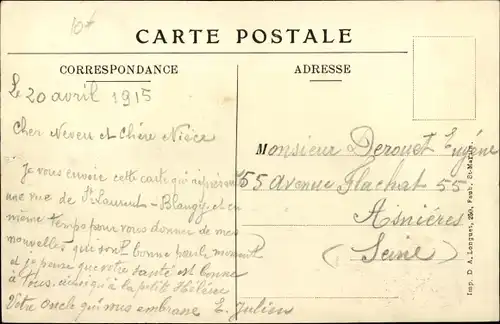 10f
CARTE POSTALE
CORRESPONDANCE
ADRESSE
Le 20 avril 1915
Cher Neveu et Chère Nièce
Je vous envoie cette carte qui
une vue de St Laurent-Blangy et en
même temps pour vous donner de mes
nouvelles qui sont bonne pour le moment
et je pense que votre santé est bonne
à tous. ainsi qu'à la petite Hélène
Votre Oncle qui vous embrasse E. Julien
Monsieur Derouet Eugène
55 Avenue Flachat 55
Asnières
(Seine)
Imp. D. A. Longuet, 250, Faub. St-Martin